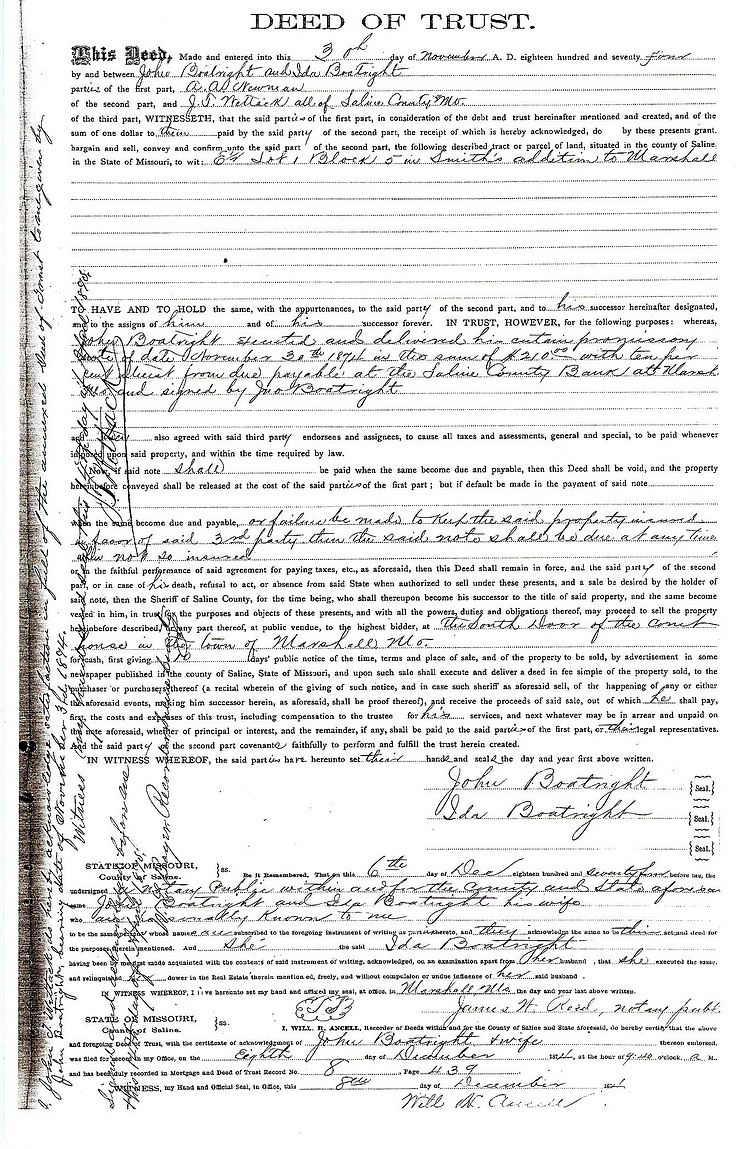 DEED OF TRUST.
This Deed, Made and entered into this 3 oh day of November A. D. eighteen hundred and seventy four
by and between John Boatright and Ida Boatright
parties of the first part, A. A. Newman
of the second part, and J. T. Wettack all of Saline County Mo.
of the third part, WITNESSETH, that the said parties of the first part, in consideration of the debt and trust hereinafter mentioned and created, and of the
sum of one dollar to them paid by the said party of the second part, the receipt of which is hereby acknowledged, do by these presents grant.
bargain and sell, convey and confirm unto the said part of the second part, the following described tract or parcel of land, situated in the county of Saline
in the State of Missouri, to wit: Lot 1 Block 5 in Smith's addition to Marshall
TO HAVE AND TO HOLD the same, with the appurtenances, to the said party of the second part, and to his successor hereinafter designated,
and to the assigns of him and of his successor forever. IN TRUST, HOWEVER, for the following purposes: whereas,
John Boatright executed and delivered his certain promissory
note of date November 30th 1874 in the sum of $210 00 with ten per
cent interest from due payable at the Saline County Bank at Marsh
Mo and signed by Jno Boatright
and also agreed with said third party endorsees and assignees, to cause all taxes and assessments, general and special, to be paid whenever
imposed upon said property, and within the time required by law.
Now, if said note shall be paid when the same become due and payable, then this Deed shall be void, and the property
hereinbefore conveyed shall be released at the cost of the said parties of the first part; but if default be made in the payment of said note
when the same become due and payable, or failure be made to keep the said property insured
in favor of said 3rd party then the said note shall be due at any time
when not so insured
in the faithful performance of said agreement for paying taxes, etc., as aforesaid, then this Deed shall remain in force, and the said party of the second
part, or in case of his death, refusal to act, or absence from said State when authorized to sell under these presents, and a sale be desired by the holder of
said note, then the Sheriff of Saline County, for the time being, who shall thereupon become his successor to the title of said property, and the same become
vested in him, in trust for the purposes and objects of these present, and with all the powers, duties and obligations thereof, may proceed to sell the property
hereinbefore described, or any part thereof, at public vendue, to the highest bidder, at the South Door of the Court
house in the town of Marshall Mo.
for cash, first giving days' public notice of the time, terms and place of sale, and of the property to be sold, by advertisement in some
newspaper published in the county of Saline, State of Missouri, and upon such sale shall execute and deliver a deed in fee simple of the property sold, to the
purchaser or purchasers thereof (a recital wherein of the giving of such notice, and in case such sheriff as aforesaid sell, of the happening of any or either
the aforesaid events, making him successor herein, as aforesaid, shall be proof thereof), and receive the proceeds of said sale, out of which he shall pay,
first, the costs and expenses of this trust, including compensation to the trustee for his services, and next whatever may be in arrear and unpaid on
the note aforesaid, whether of principal or interest, and the remainder, if any, shall be paid to the said parties of the first part, or their legal representatives.
And the said party of the second part covenants faithfully to perform and fulfill the trust herein created.
IN WITNESS WHEREOF, the said parties have hereunto set their hands and seals the day and year first above written.
John Boatright {Seal.}
Ida Boatright {Seal.}
{Seal.}
STATE OF MISSOURI,
County of Saline. } ss. Be it Remembered, That on this 6th day of Dec eighteen hundred and seventy four before me, the
undersigned a Notary Public within and for the County and State aforesaid
came John Boatright and Ida Boatright his wife
who are personally known to me
to be the same persons whose names are subscribed to the foregoing instrument of writing as parties thereto, and they acknowledge the same to be their act and deed for
the purposes therein mentioned. And she the said Ida Boatright
having been by me first made acquainted with the contents of said instrument of writing, acknowledged, on an examination apart from her husband, that she executed the same,
and relinquished her dower in the Real Estate therein mentioned, freely, and without compulsion or undue influence of her said husband.
IN WITNESS WHEREOF, I have hereunto set my hand and affixed my seal, at office, in Marshall Mo the day and year last above written.
James W. Reid, notary publ.
STATE OF MISSOURI,
County of Saline. } ss. I, WILL H. ANCELL, Recorder of Deeds within and for the County of Saline and State aforesaid, do hereby certify that the above
and foregoing Deed of Trust, with the certificate of acknowledgment of John Boatright & wife thereon endorsed,
was filed for record in my office, on the Eighth day of December 1874, at the hour of 9:40 o'clock, a M.
and has been duly recorded in Mortgage and Deed of Trust Record No. 8, Page 439
WITNESS, my Hand and Official Seal, in Office, this 8th day of December 1874
Will H. Ancell
I, John T. Wettack do hereby acknowledge satisfaction in full of the annexed deed of trust to me given by
John Boatright, bearing date of November 30th 1874.